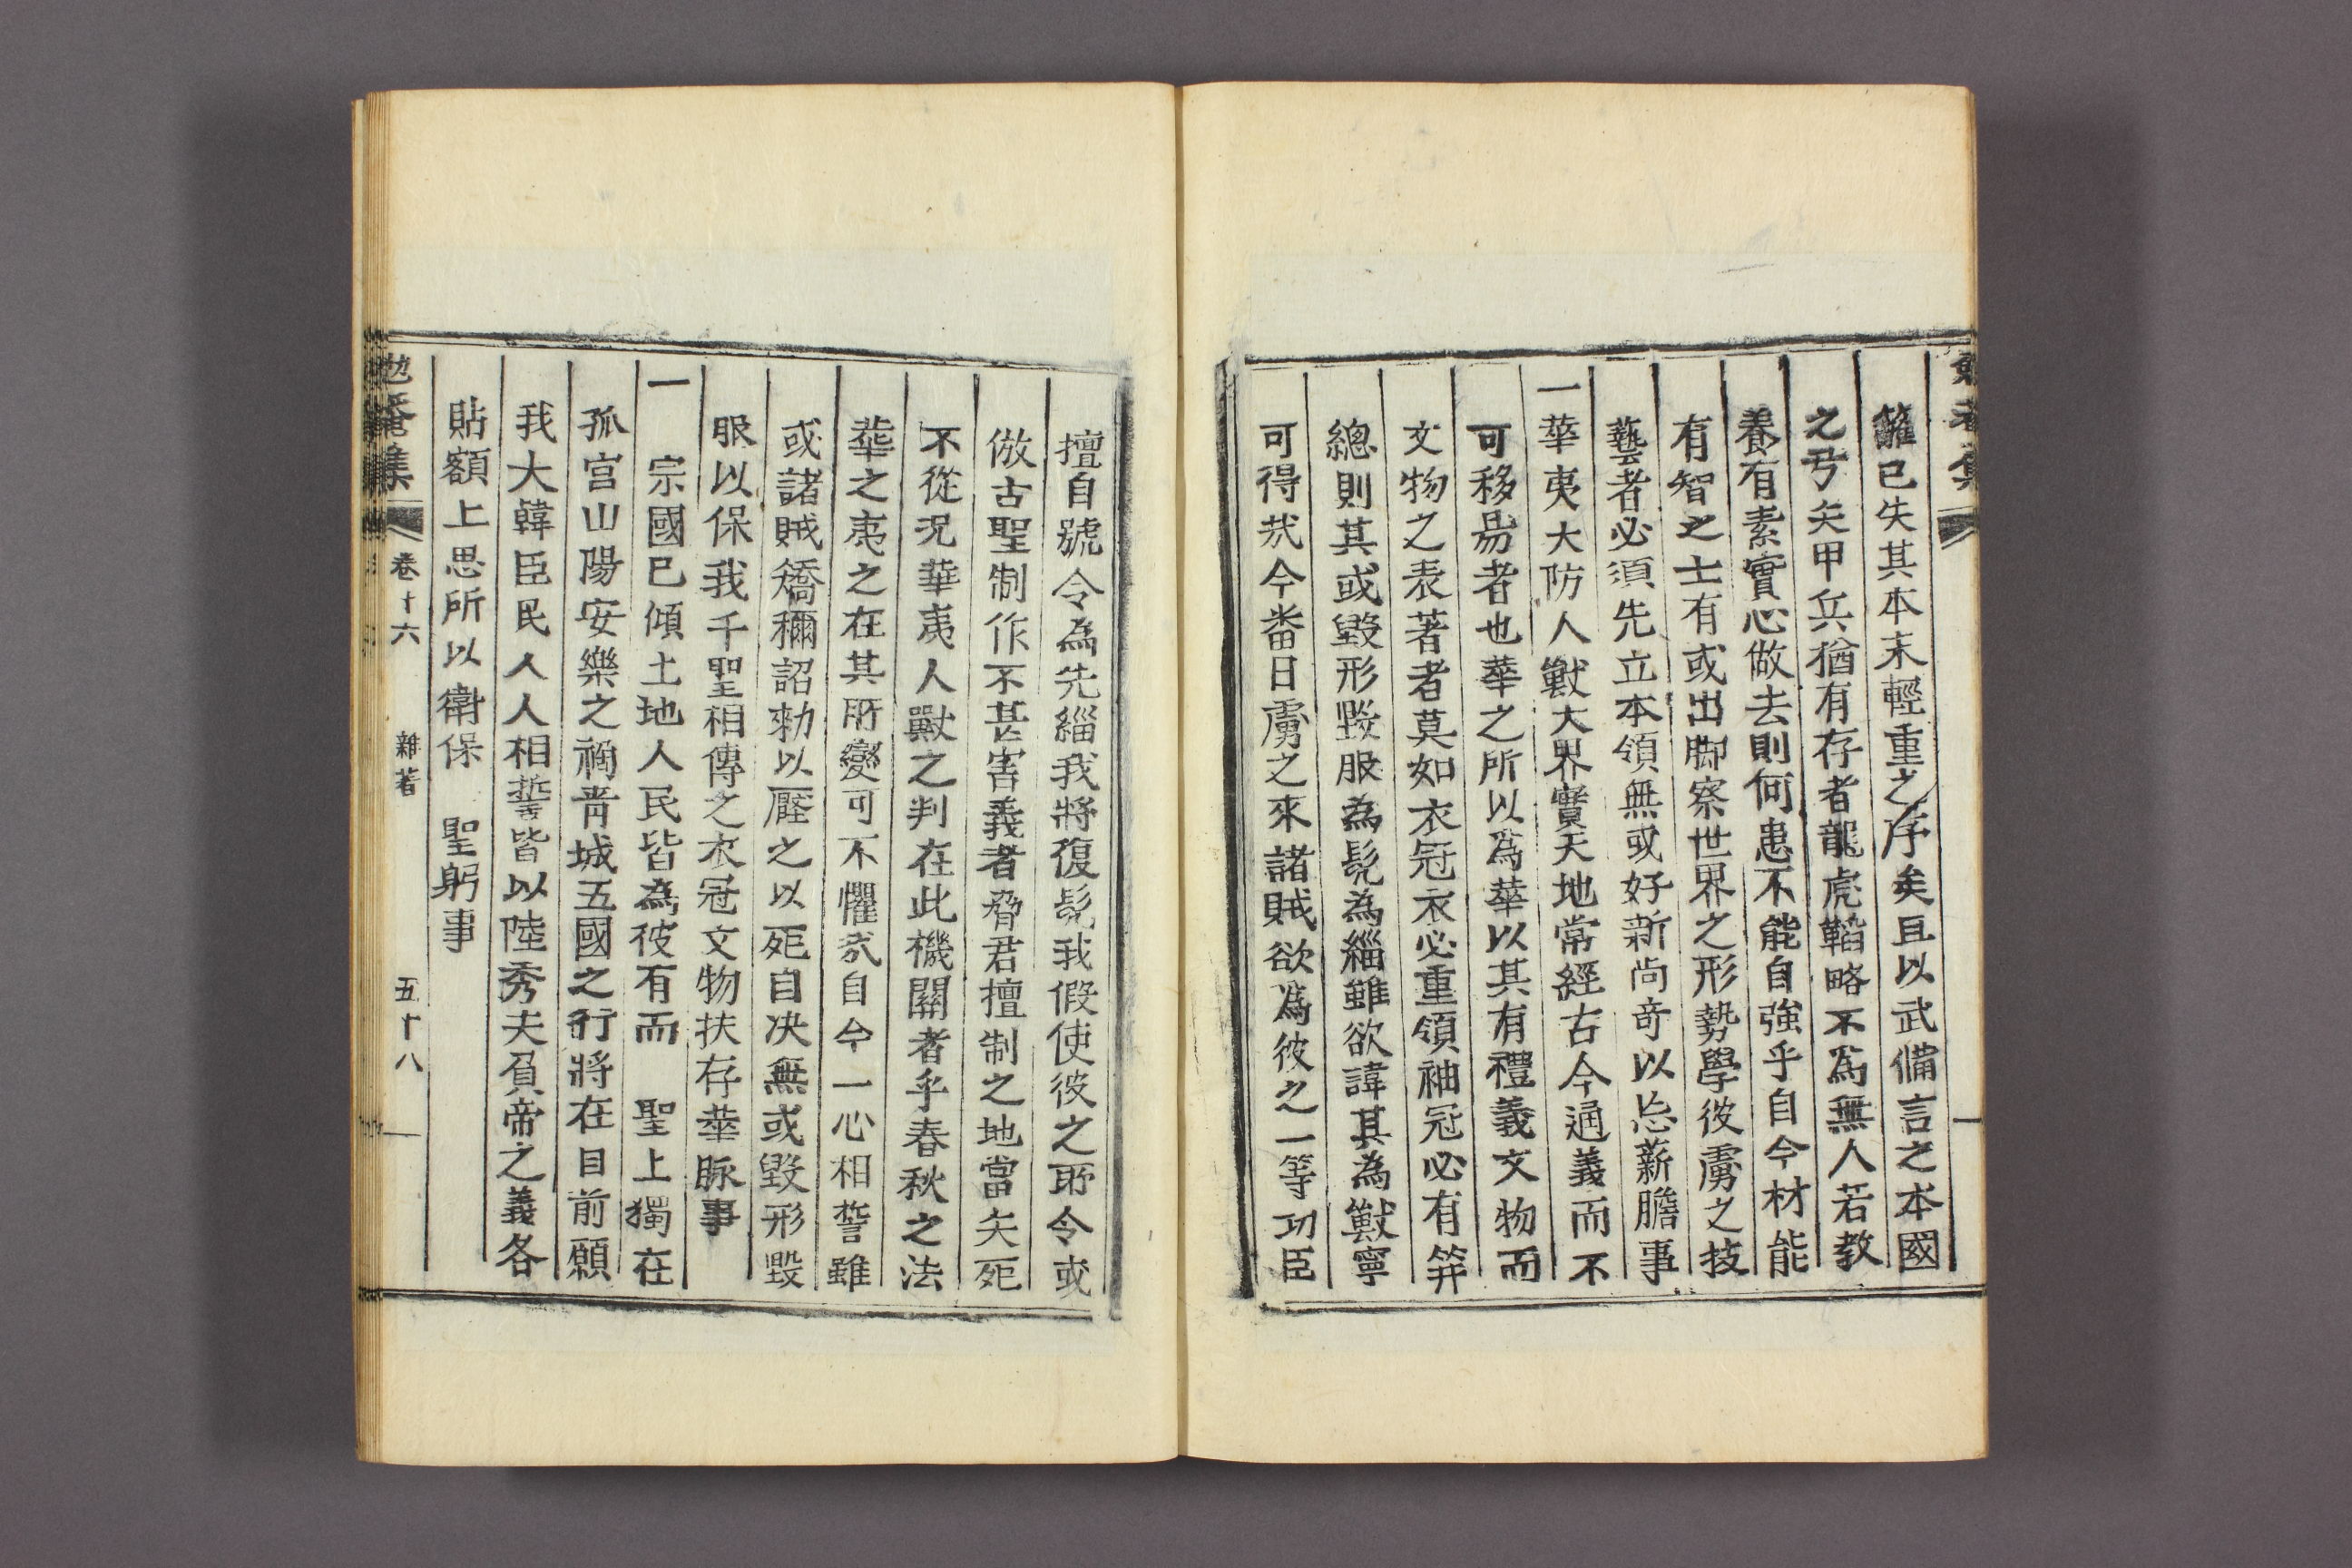 籬已失其本末輕重之序矣且以武備言之本國
之弓矢甲兵猶有存者龍虎韜略不爲無人若教
養有素實心做去則何患不能自強乎自今材能
有智之士有或出脚察世界之形勢學彼虜之技
藝者必須先立本領無或好新尙奇以忘薪膽事
一華夷大防人獸大界實天地常經古今通義而不
可移易者也華之所以爲華以其有禮義文物而
文物之表著者莫如衣冠衣必重領袖冠必有笄
總則其或毀形毀服為髡為緇雖欲諱其為獸寧
可得㢤今番日虜之來諸賊欲爲彼之一等功臣
擅自號令為先緇我將復髡我假使彼之所令或
倣古聖制作不甚害義者脅君擅制之地當矢死
不從況華夷人獸之判在此機關者乎春秋之法
華之夷之在其所變可不懼㢤自今一心相誓雖
或諸賊矯稱詔勑以壓之以死自决無或毀形毀
服以保我千聖相傳之衣冠文物扶存華脉事
一
宗國已傾土地人民皆為彼有而 聖上獨在
孤宮山陽安樂之禍靑城五國之行將在目前願
我大韓臣民人人相誓皆以陸秀夫負帝之義各
貼額上思所以衛保 聖躬事
勉菴集 卷十六 雜著 五十八